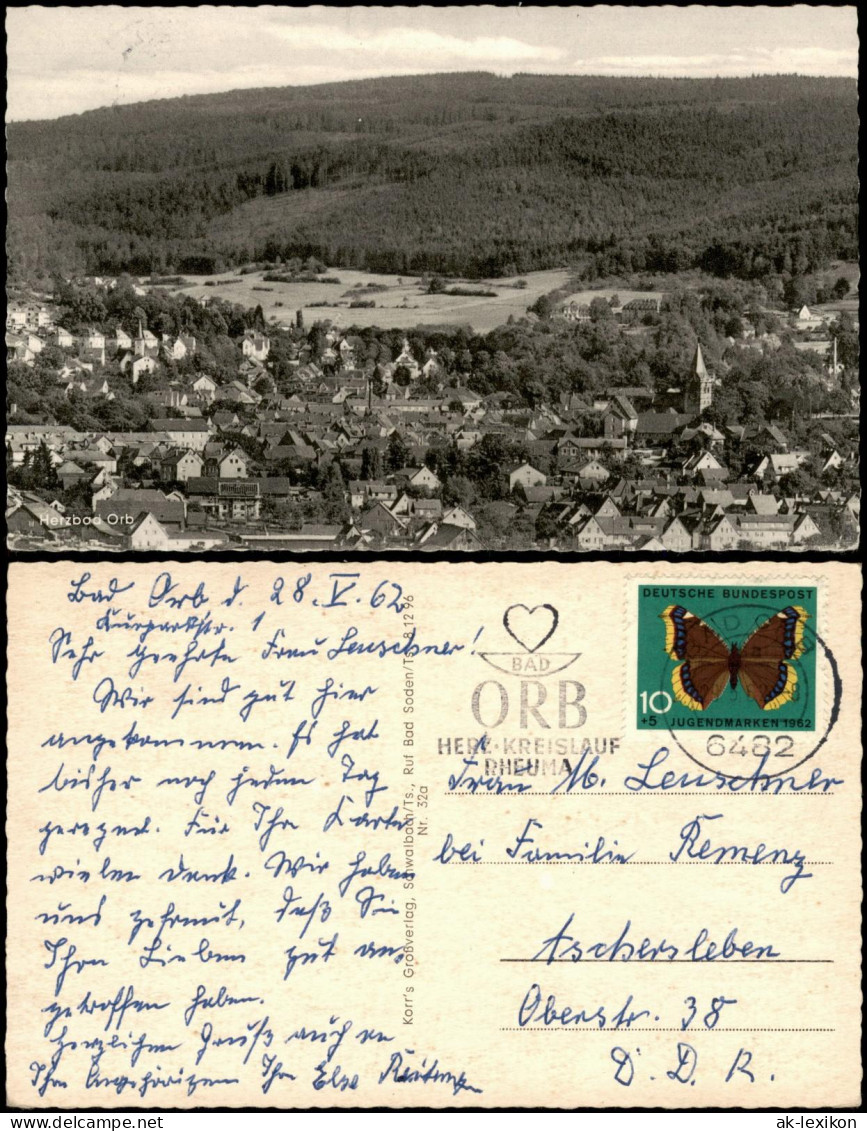 Herzbad Orb
Bad Orb d. 28. V. 62
Kurparkstr. 1
Sehr geehrte Frau Leuschner!
Wir sind gut hier
angekommen. Es hat
bisher noch jeden Tag
geregnet. Für Ihre Karte
vielen Dank. Wir haben
uns gefreut, daß Sie
Ihre Lieben gut an-
getroffen haben.
Herzlichen Gruß auch an
Ihre Angehörigen Ihre Else
Korr's Großverlag, Schwalbach/Ts., Ruf Bad Soden/Ts. 8 12 96
Nr. 32a
BAD
ORB
HERZ·KREISLAUF
RHEUMA
DEUTSCHE BUNDESPOST
10
+5 JUGENDMARKEN 1962
6482
Frau M. Leuschner
bei Familie Remenz
Aschersleben
Oberstr. 38
D. D. R.
© ak-ansichtskarten.de
ak-lexikon